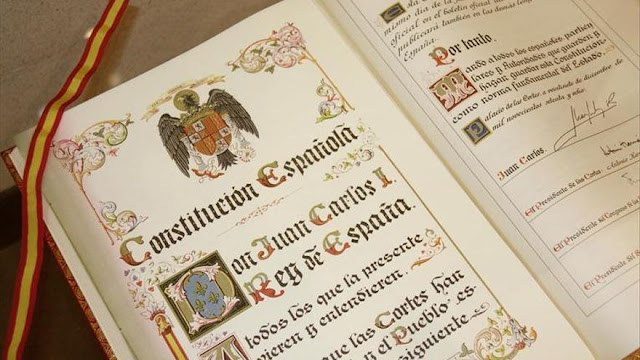 Constitución Española
Don Juan Carlos I.
Rey de España.
A todos los que la presente
vieren y entendieren.
que las Cortes han
y el Pueblo es-
siguiente
mismo día de la
oficial en el boletín oficial
publicará también en las demás
España.
Por tanto.
Mando a todos los españoles, particu
lares y Autoridades que guarden y
hagan guardar esta Constitución
como norma fundamental del Estado.
Palacio de las Cortes, a veintisiete de diciembre de
mil novecientos setenta y ocho.
Juan Carlos.
El Presidente de las Cortes.
El Presidente del Congreso de los
El Presidente
El Presid